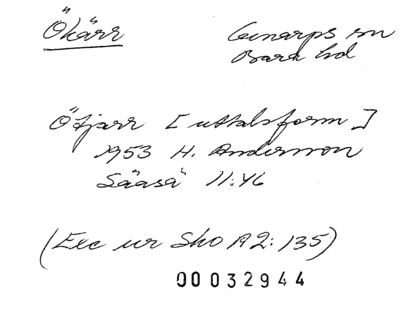 Ökärr
Genarps sn
Bara hd
Ötjarr [uttalsform]
1953 H. Andersson
Såaså 11:46
(Exc ur Sko A2:135)
00032944